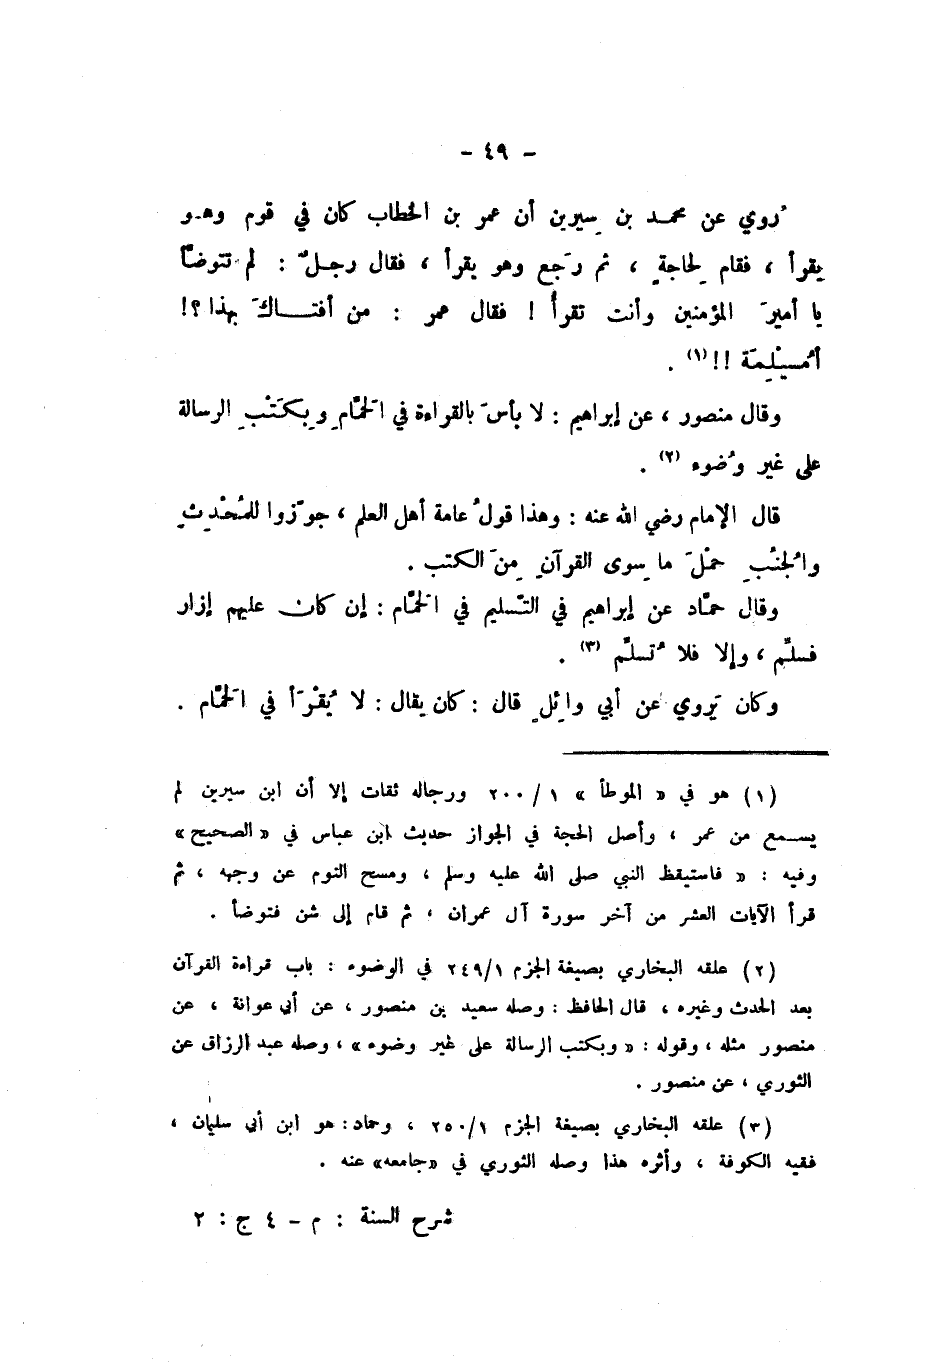 - ٤٩ -
رُوي عن محمد بن سِيرين أن عمر بن الخطاب كان في قوم وهو
يقرأ ، فقام لِحاجةٍ ، ثم رَجع وهو يقرأ ، فقال رجلٌ : لم تتوضأ
يا أميرَ المؤمنين وأنت تقرأُ ! فقال عمر : من أفتاكَ بهذا ؟!
أمُسيْلِمَة !!(١) .
وقال منصور ، عن إبراهيم : لا بأسَ بالقراءة في الحَمَّامِ وبِكَتْبِ الرسالة
على غير وُضوء (٢) .
قال الإمام رضي الله عنه : وهذا قولُ عامة أهل العلم ، جوَّزوا للمُحْدِثِ
والجُنُبِ حمْلَ ما سِوى القرآنِ مِنَ الكتب .
وقال حمَّاد عن إبراهيم في التَّسليم في الحَمَّام : إن كان عليهم إزار
فسلِّم ، وإلا فلا تُسلِّم (٣) .
وكان يَروي عن أبي وائِلٍ قال : كان يقال : لا يُقْرَأ في الحَمَّام .
(١) هو في « الموطأ » ١ / ٢٠٠ ورجاله ثقات إلا أن ابن سيرين لم
يسمع من عمر ، وأصل الحجة في الجواز حديث ابن عباس في « الصحيح »
وفيه : « فاستيقظ النبي صلى الله عليه وسلم ، ومسح النوم عن وجهه ، ثم
قرأ الآيات العشر من آخر سورة آل عمران ، ثم قام إلى شن فتوضأ .
(٢) علقه البخاري بصيغة الجزم ٢٤٩/١ في الوضوء : باب قراءة القرآن
بعد الحدث وغيره ، قال الحافظ : وصله سعيد بن منصور ، عن أبي عوانة ، عن
منصور مثله ، وقوله : « وبكتب الرسالة على غير وضوء » ، وصله عبد الرزاق عن
الثوري ، عن منصور .
(٣) علقه البخاري بصيغة الجزم ٢٥٠/١ ، وحماد : هو ابن أبي سليمان ،
فقيه الكوفة ، وأثره هذا وصله الثوري في «جامعه» عنه .
شرح السنة : م - ٤ ج : ٢